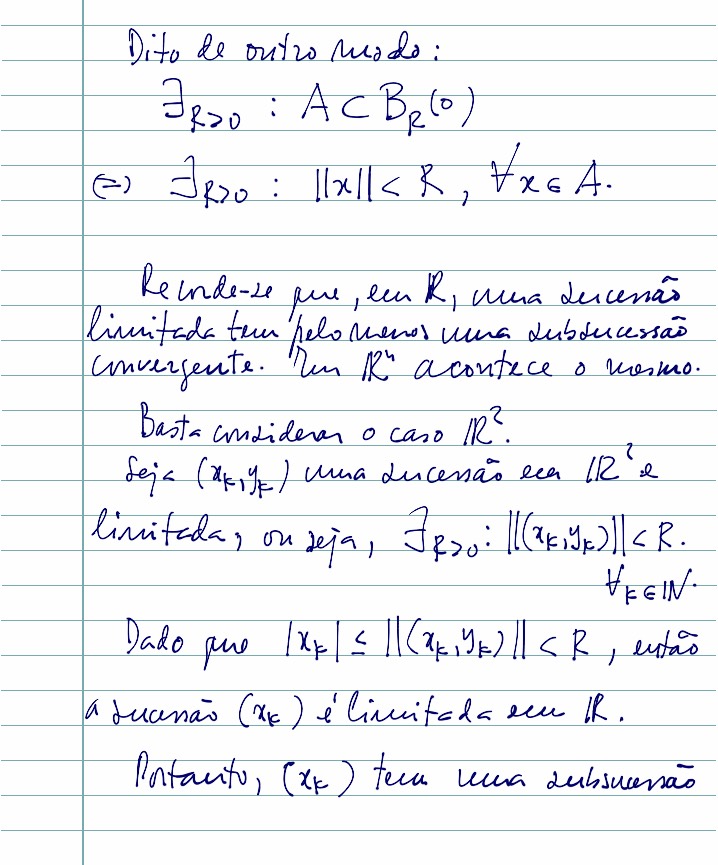 Dito de outro modo:
∃_{R>0} : A ⊂ B_R(0)
⇔ ∃_{R>0} : ||x|| < R, ∀x ∈ A.
Recorde-se que, em ℝ, uma sucessão
limitada tem pelo menos uma subsucessão
convergente. Em ℝⁿ acontece o mesmo.
Basta considerar o caso ℝ².
Seja (x_k, y_k) uma sucessão em ℝ² e
limitada, ou seja, ∃_{R>0} : ||(x_k, y_k)|| < R.
∀_{k∈ℕ}.
Dado que |x_k| ≤ ||(x_k, y_k)|| < R, então
a sucessão (x_k) é limitada em ℝ.
Portanto, (x_k) tem uma subsucessão